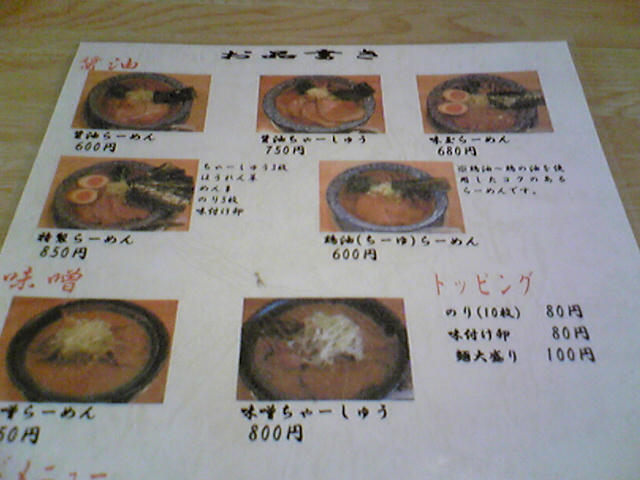 お品書き
醤油
醤油らーめん
600円
醤油ちゃーしゅう
750円
味玉らーめん
680円
ちゃーしゅう3枚
ほうれん草
めんま
のり3枚
味付け卵
特製らーめん
850円
鶏油(ちーゆ)らーめん
600円
※鶏油～鶏の油を使
用したコクのある
らーめんです。
味噌
噌らーめん
50円
味噌ちゃーしゅう
800円
トッピング
のり(10枚) 80円
味付け卵 80円
麺大盛り 100円
メニュー